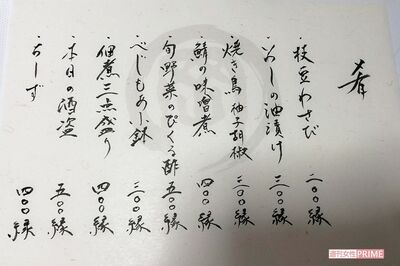 肴
・枝豆わさび 二〇〇縁
・いわしの油漬け 三〇〇縁
・焼き鳥 柚子胡椒 三〇〇縁
・鯖の味噌煮 四〇〇縁
・旬野菜のぴくる酢 五〇〇縁
・べじもあ小鉢 三〇〇縁
・佃煮三点盛り 四〇〇縁
・本日の酒盗 五〇〇縁
・ちーず 四〇〇縁
週刊女性PRIME